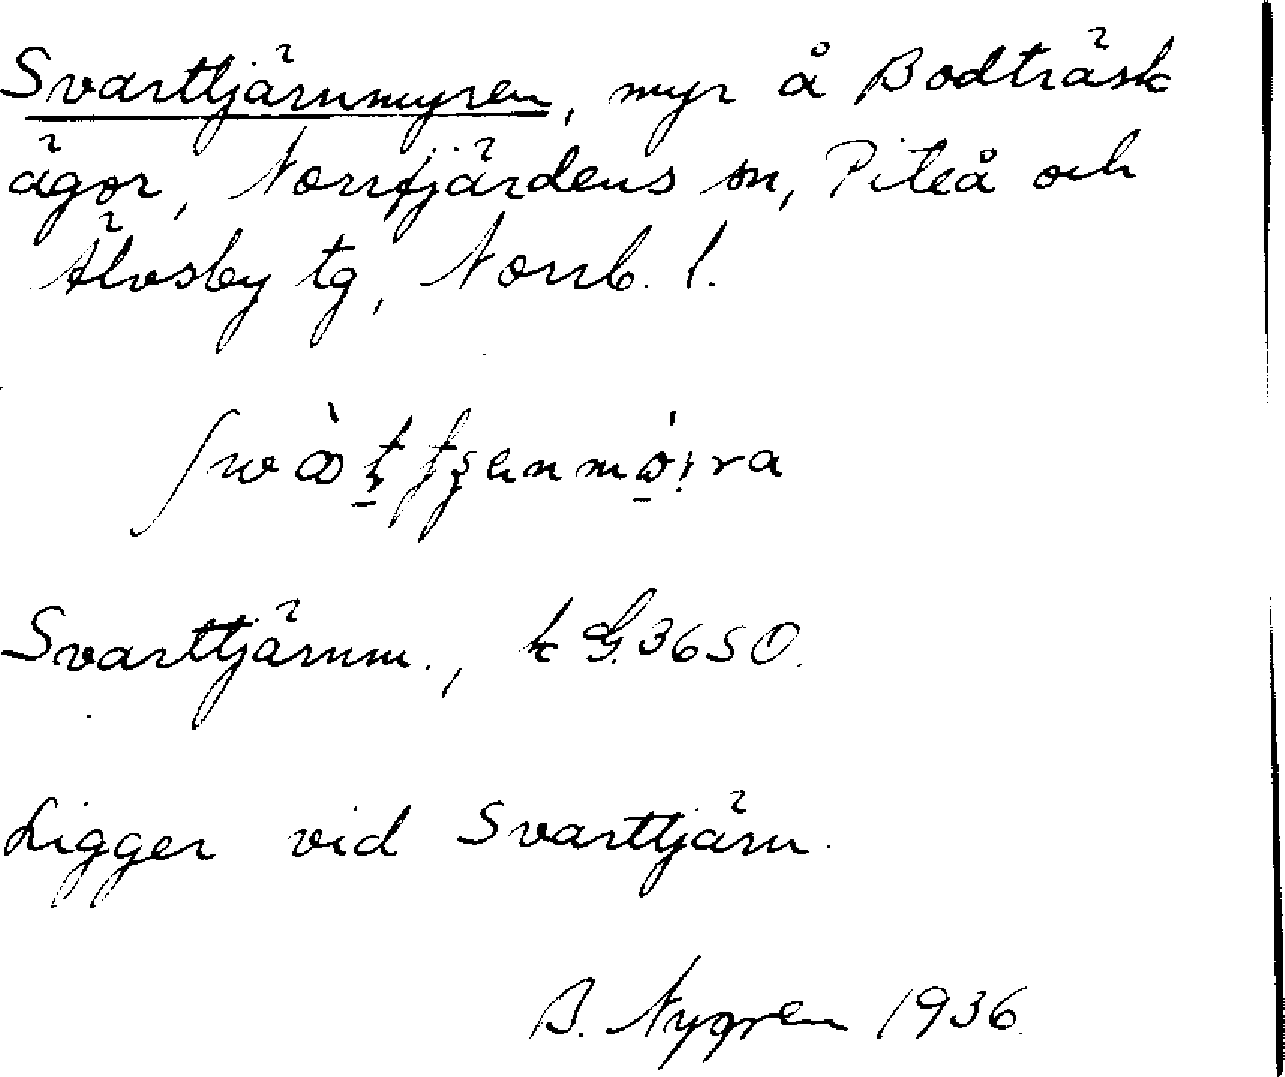 Svarttjärnmyren, myr å Bodträsk
ägor, Norrfjärdens sn, Piteå och
Älvsby tg, Norrb. l.
Svarttjärnm., k G. 3650.
Ligger vid Svarttjärn.
B. Nygren 1936